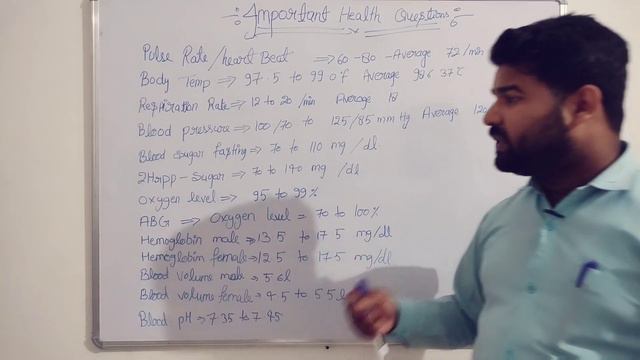 Important Health Questions
Pulse Rate/heart Beat ⇒ 60-80 - Average 72/min
Body Temp ⇒ 97.5 to 99 0f Average 98.6 37℃
Respiration Rate ⇒ 12 to 20 /min Average 18
Blood pressure ⇒ 100/70 to 125/85 mm Hg Average 120
Blood Sugar fasting ⇒ 70 to 110 mg /dl
2Hrpp-Sugar ⇒ 70 to 140 mg /dl
Oxygen level ⇒ 95 to 99%
ABG ⇒ Oxygen level = 70 to 100%
Hemoglobin male ⇒ 13 5 to 17 5 mg/dl
Hemoglobin female ⇒ 12 5 to 17 5 mg/dl
Blood volume male ⇒ 5 6l
Blood volume female ⇒ 4 5 to 5 5 l
Blood pH ⇒ 7 35 to 7 45